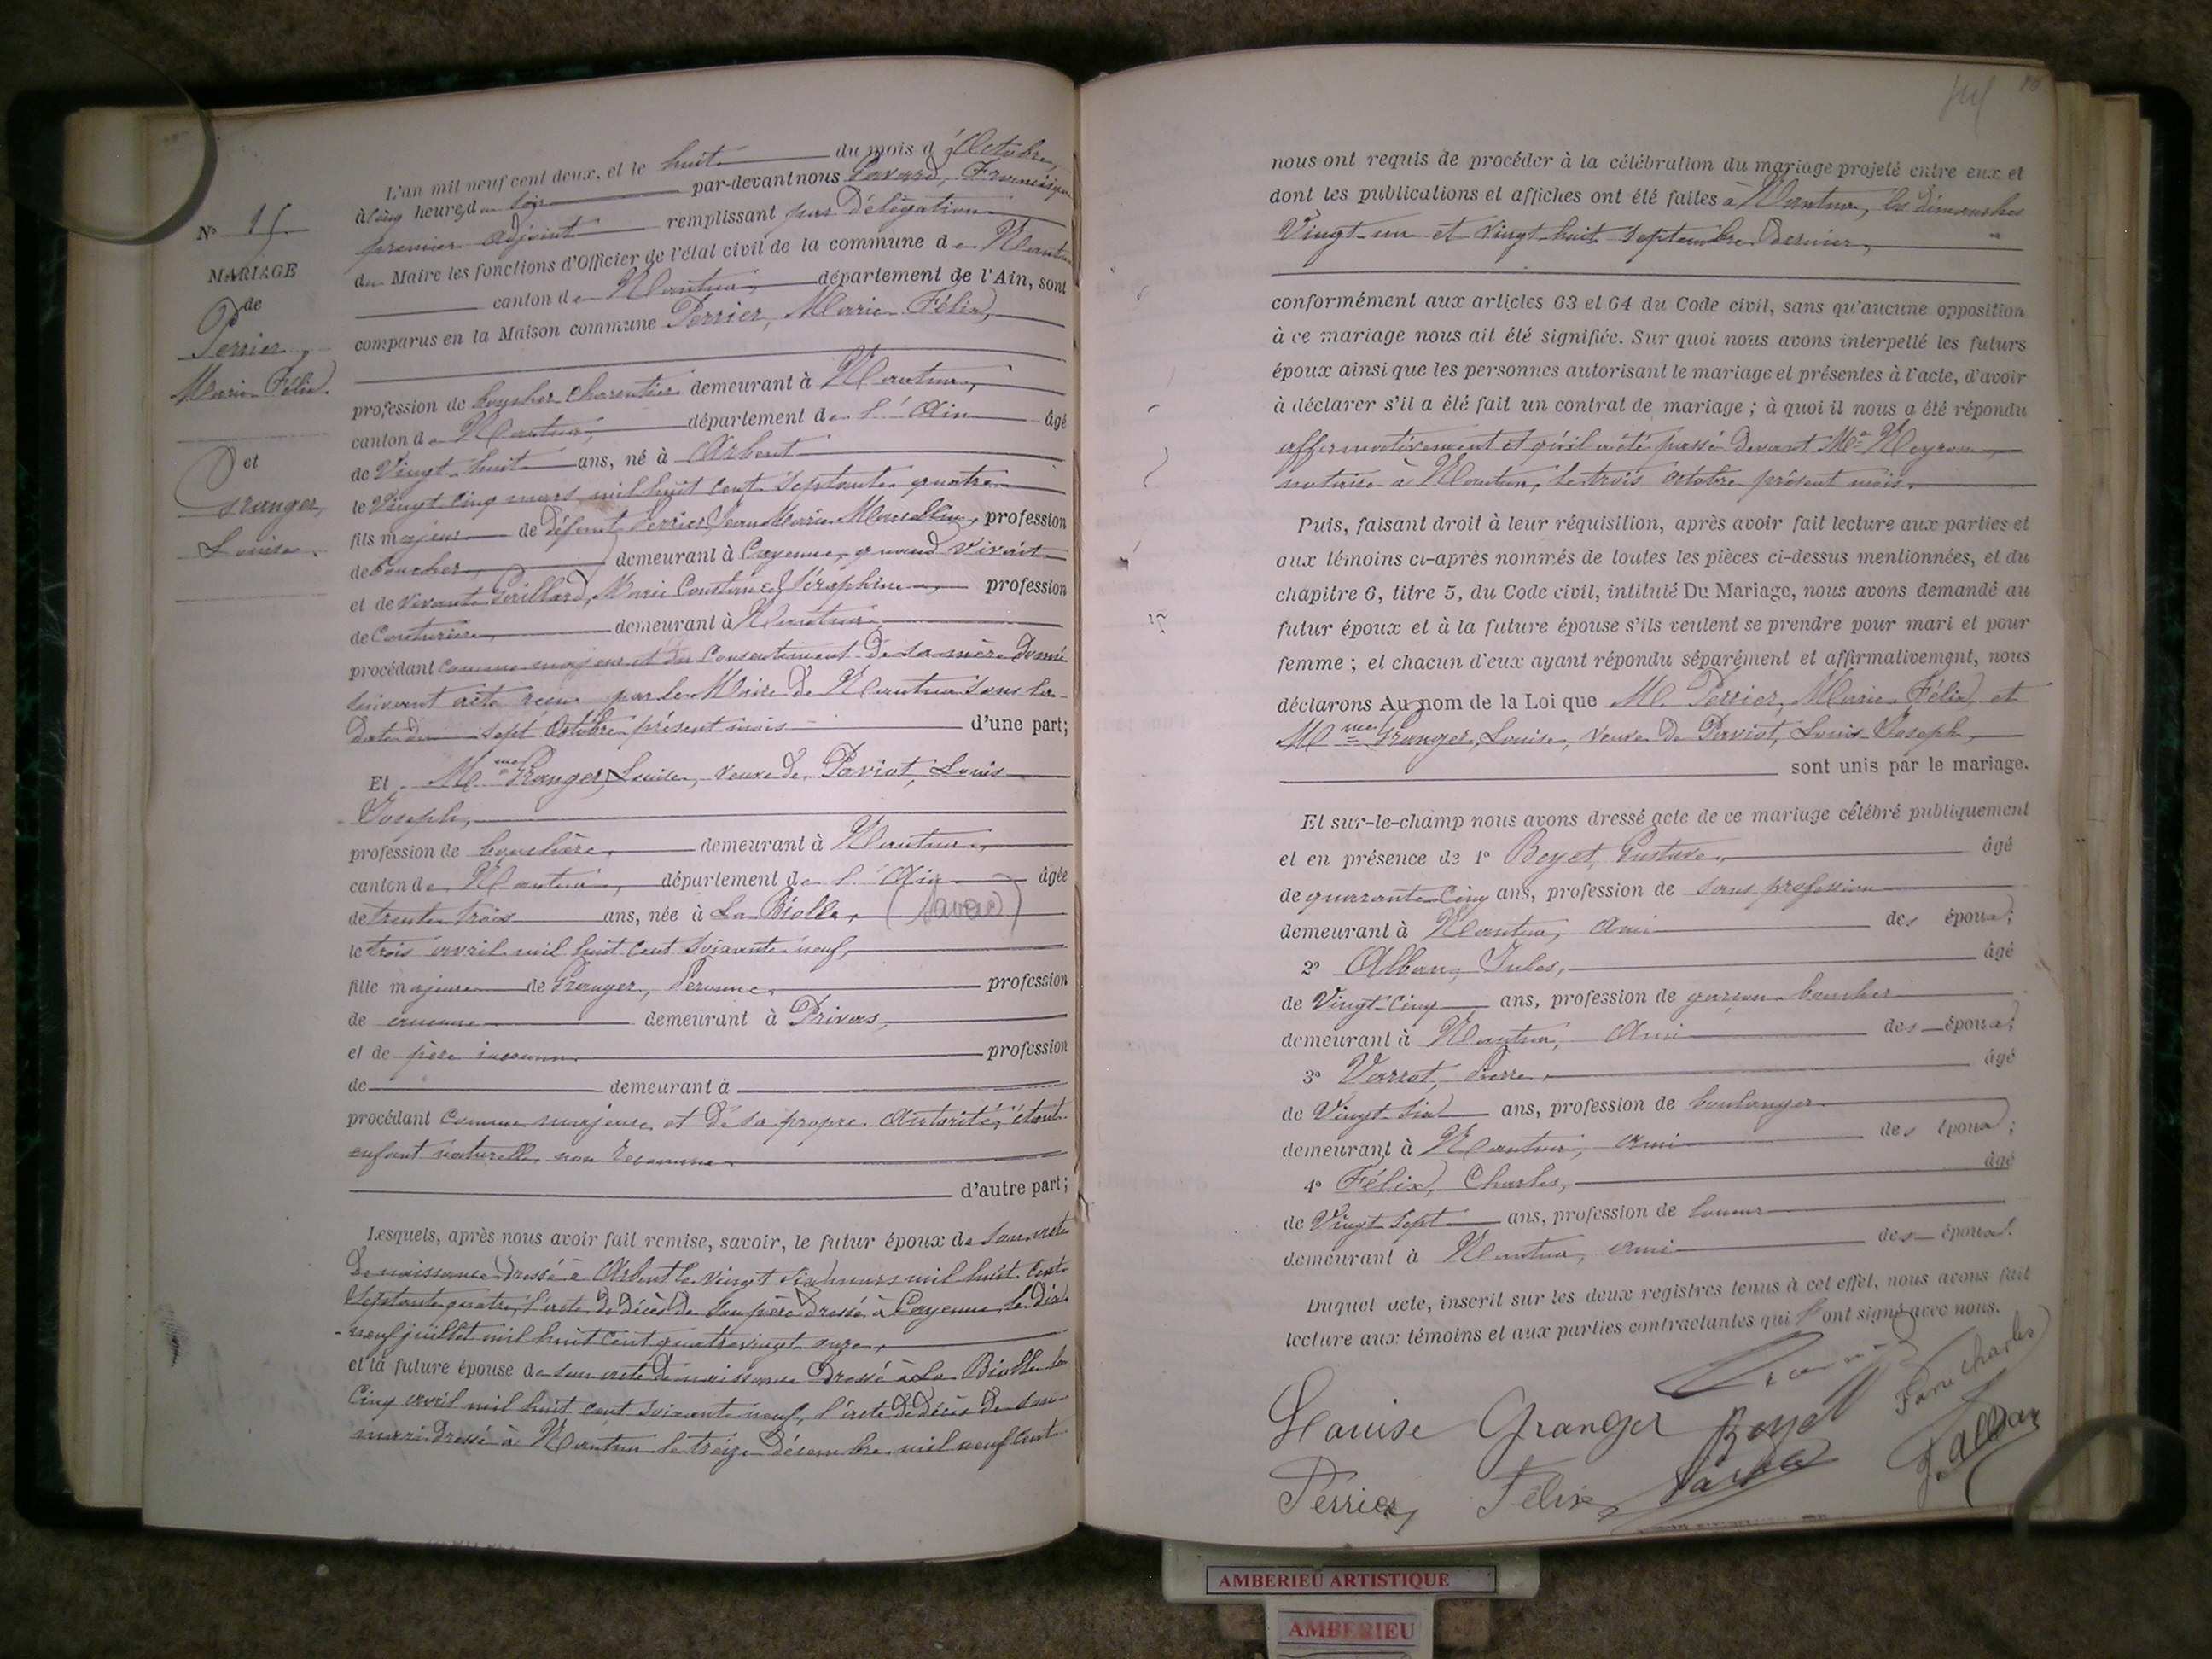 N° 15
MARIAGE
de
Perrier,
Marie Félix
et
Granger,
Louise.
L'an mil neuf cent deux, et le huit du mois d'Octobre,
à cinq heures du soir par-devant nous Savard, Francisque
premier adjoint remplissant par délégation
du Maire les fonctions d'Officier de l'état civil de la commune de Nantua
canton de Nantua, département de l'Ain, sont
comparus en la Maison commune Perrier, Marie Félix,
profession de boucher charcutier demeurant à Nantua,
canton de Nantua, département de l'Ain âgé
de Vingt huit ans, né à Arbent
le Vingt cinq mars mil huit cent septante quatre
fils majeur de défunt Perrier, Jean Marie Marcellin, profession
de boucher, demeurant à Cayenne, quand vivait
et de vivante Gaillard, Marie Constance Séraphine, profession
de Couturière demeurant à Nantua
procédant comme majeur et du Consentement de sa mère donné
suivant acte reçu par le Maire de Nantua sous la
date du sept Octobre présent mois d'une part;
Et Mme Granger, Louise, veuve de Paviot, Louis
Joseph,
profession de bouchère, demeurant à Nantua,
canton de Nantua, département de l'Ain âgée
de trente trois ans, née à La Biolle, (Savoie)
le trois avril mil huit cent soixante neuf,
fille majeure de Granger, Péronne, profession
de aucune demeurant à Privas,
et de père inconnu profession
de demeurant à
procédant comme majeure et de sa propre autorité, étant
enfant naturelle non reconnue.
d'autre part;
Lesquels, après nous avoir fait remise, savoir, le futur époux de son acte
de naissance dressé à Arbent le vingt six mars mil huit cent
septante quatre, l'acte de décès de son père dressé à Cayenne le dix
neuf juillet mil huit cent quatre vingt onze,
et la future épouse de son acte de naissance dressé à La Biolle le
Cinq avril mil huit cent soixante neuf, l'acte de décès de son
mari dressé à Nantua le treize décembre mil neuf cent
nous ont requis de procéder à la célébration du mariage projeté entre eux et
dont les publications et affiches ont été faites à Nantua, les dimanches
Vingt un et vingt huit septembre dernier,
conformément aux articles 63 et 64 du Code civil, sans qu'aucune opposition
à ce mariage nous ait été signifiée. Sur quoi nous avons interpellé les futurs
époux ainsi que les personnes autorisant le mariage et présentes à l'acte, d'avoir
à déclarer s'il a été fait un contrat de mariage ; à quoi il nous a été répondu
affirmativement et qu'il a été passé devant Me Neyron
notaire à Nantua, le trois octobre présent mois.
Puis, faisant droit à leur réquisition, après avoir fait lecture aux parties et
aux témoins ci-après nommés de toutes les pièces ci-dessus mentionnées, et du
chapitre 6, titre 5, du Code civil, intitulé Du Mariage, nous avons demandé au
futur époux et à la future épouse s'ils veulent se prendre pour mari et pour
femme ; et chacun d'eux ayant répondu séparément et affirmativement, nous
déclarons Au nom de la Loi que M. Perrier, Marie Félix et
Mme Granger, Louise, veuve de Paviot, Louis Joseph,
sont unis par le mariage.
Et sur-le-champ nous avons dressé acte de ce mariage célébré publiquement
et en présence de 1° Beyet, Gustave, âgé
de quarante cinq ans, profession de sans profession
demeurant à Nantua, ami des époux;
2° Alban, Jules, âgé
de Vingt cinq ans, profession de garçon boucher
demeurant à Nantua, ami des époux;
3° Varrot, Pierre, âgé
de Vingt six ans, profession de boulanger
demeurant à Nantua, ami des époux;
4° Félix, Charles, âgé
de Vingt sept ans, profession de
demeurant à Nantua, ami des époux.
Duquel acte, inscrit sur les deux registres tenus à cet effet, nous avons fait
lecture aux témoins et aux parties contractantes qui l'ont signé avec nous.
Louise Granger Beyet
Perrier Félix
J. Alban
AMBERIEU ARTISTIQUE
AMBERIEU